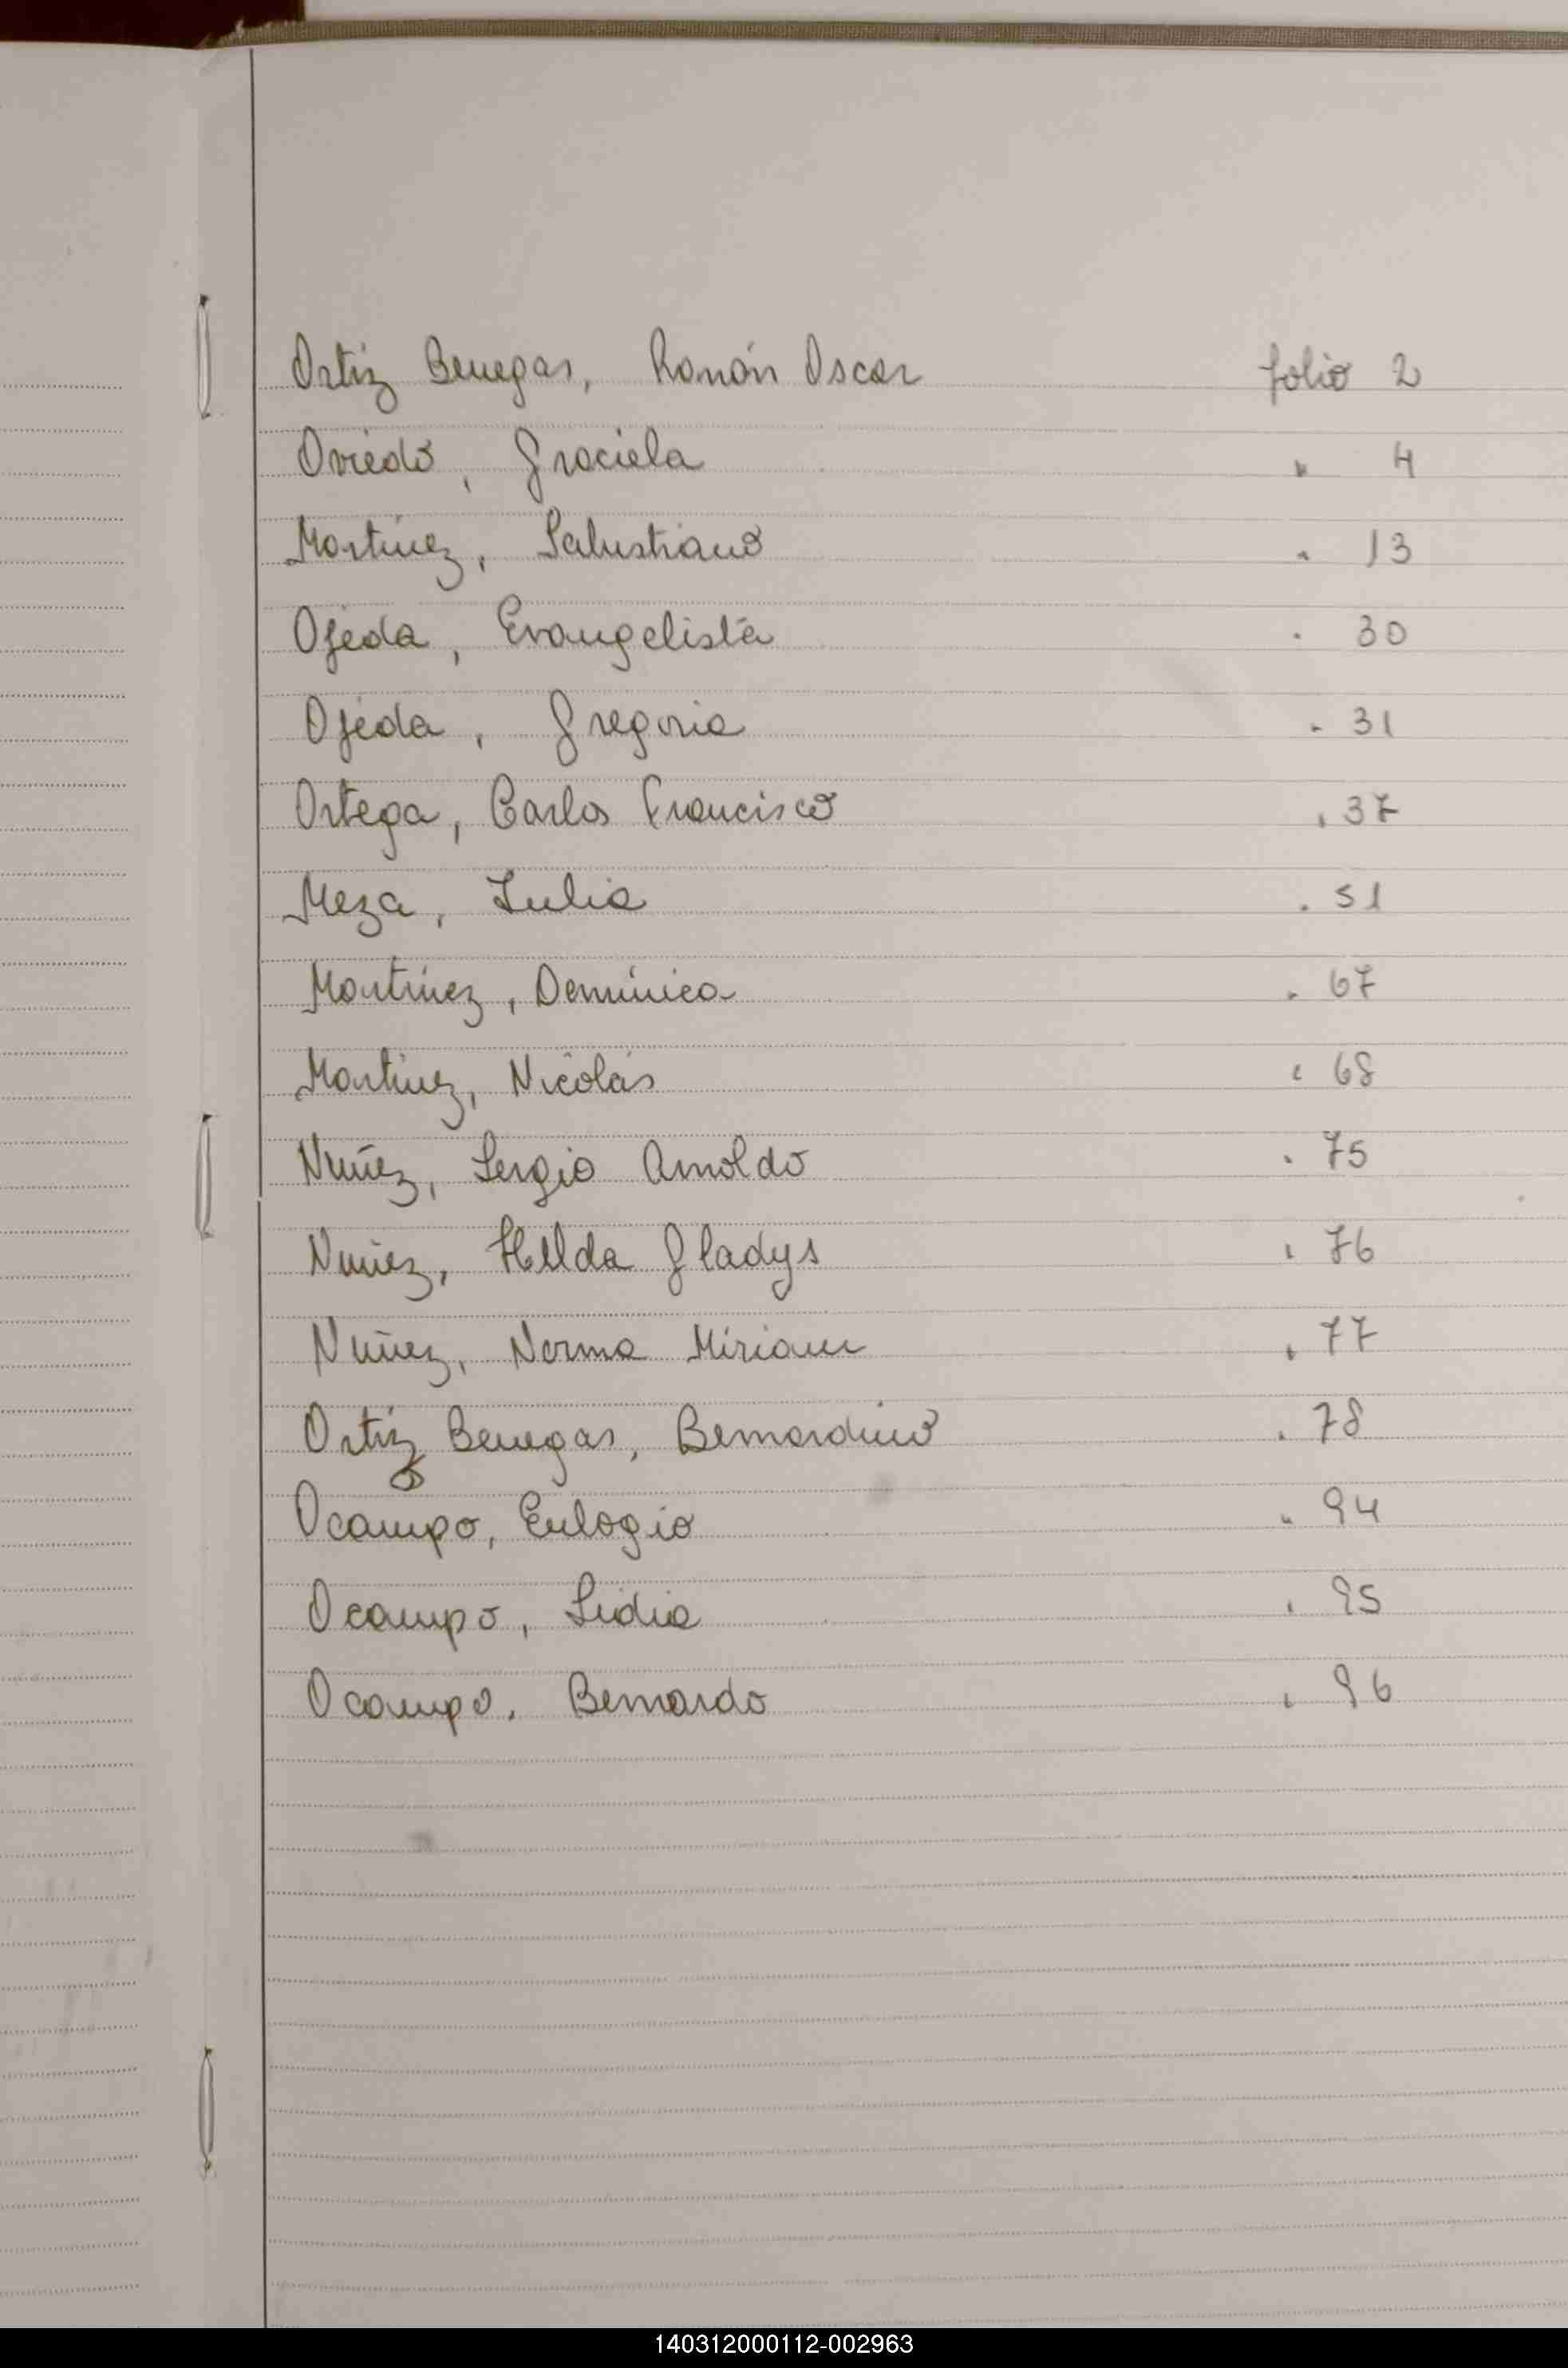 Ortiz Benegas, Ramón Oscar folio 2
Oviedo, Graciela " 4
Martínez, Salustiano " 13
Ojeda, Evangelista " 30
Ojeda, Gregoria " 31
Ortega, Carlos Francisco " 37
Meza, Julia " 51
Martínez, Dominica " 67
Martínez, Nicolás " 68
Nuñez, Sergio Arnoldo " 75
Nuñez, Hilda Gladys " 76
Nuñez, Norma Miriam " 77
Ortiz Benegas, Bernardino " 78
Ocampo, Eulogio " 94
Ocampo, Lidia " 95
Ocampo, Bernardo " 96
140312000112-002963